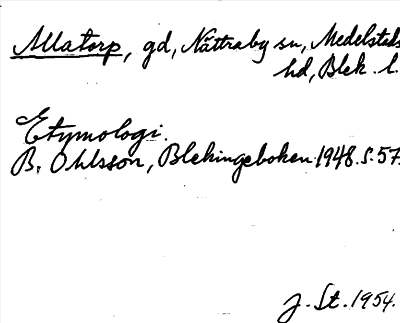 Allatorp, gd, Nättraby sn, Medelstads
hd, Blek. l.
Etymologi.
B. Ohlsson, Blekingeboken 1948. s. 57.
J. St. 1954.